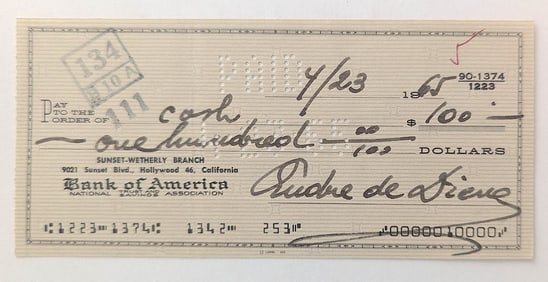 134
10 A
111
PAID
4/23 1965
90-1374
1223
PAY TO THE ORDER OF cash $ 100 —
— one hundred — 00/100 DOLLARS
SUNSET-WETHERLY BRANCH
9021 Sunset Blvd., Hollywood 46, California
Bank of America
NATIONAL TRUST AND SAVINGS ASSOCIATION
Andre de Dienes
⑆1223⑉1374⑆ 1342⑈ 253⑈ ⑈0000010000⑈